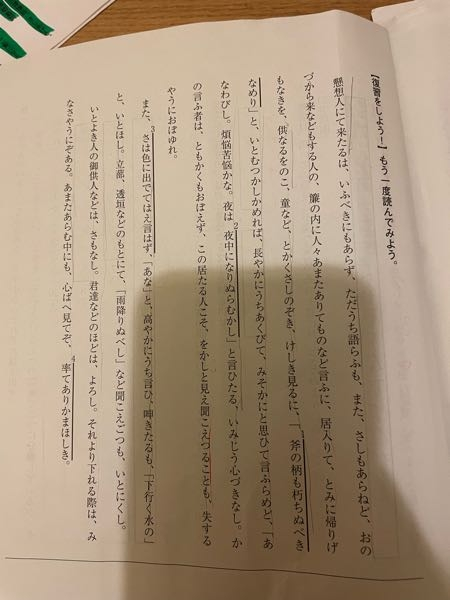 【復習をしよう!】もう一度読んでみよう。
懸想人にて来たるは、いふべきにもあらず、ただうち語らふも、また、さしもあらねど、おの
づから来などもする人の、簾の内に人々あまたありてものなど言ふに、居入りて、とみに帰りげ
もなきを、供なるをのこ、童など、とかくさしのぞき、けしき見るに、「1斧の柄も朽ちぬべき
なめり」と、いとむつかしかめれば、長やかにうちあくびて、みそかにと思ひて言ふらめど、「あ
なわびし。煩悩苦悩かな。夜は2夜中になりぬらむかし」と言ひたる、いみじう心づきなし。か
の言ふ者は、ともかくもおぼえず、この居たる人こそ、をかしと見え聞こえつることも、失する
やうにおぼゆれ。
また、3さは色に出でてはえ言はず、「あな」と、高やかにうち言ひ、呻きたるも、「下行く水の」
と、いとほし。立蔀、透垣などのもとにて、「雨降りぬべし」など聞こえごつも、いとにくし。
いとよき人の御供人などは、さもなし。君達などのほどは、よろし。それより下れる際は、み
なさやうにぞある。あまたあらむ中にも、心ばへ見てぞ、4率てありかまほしき。